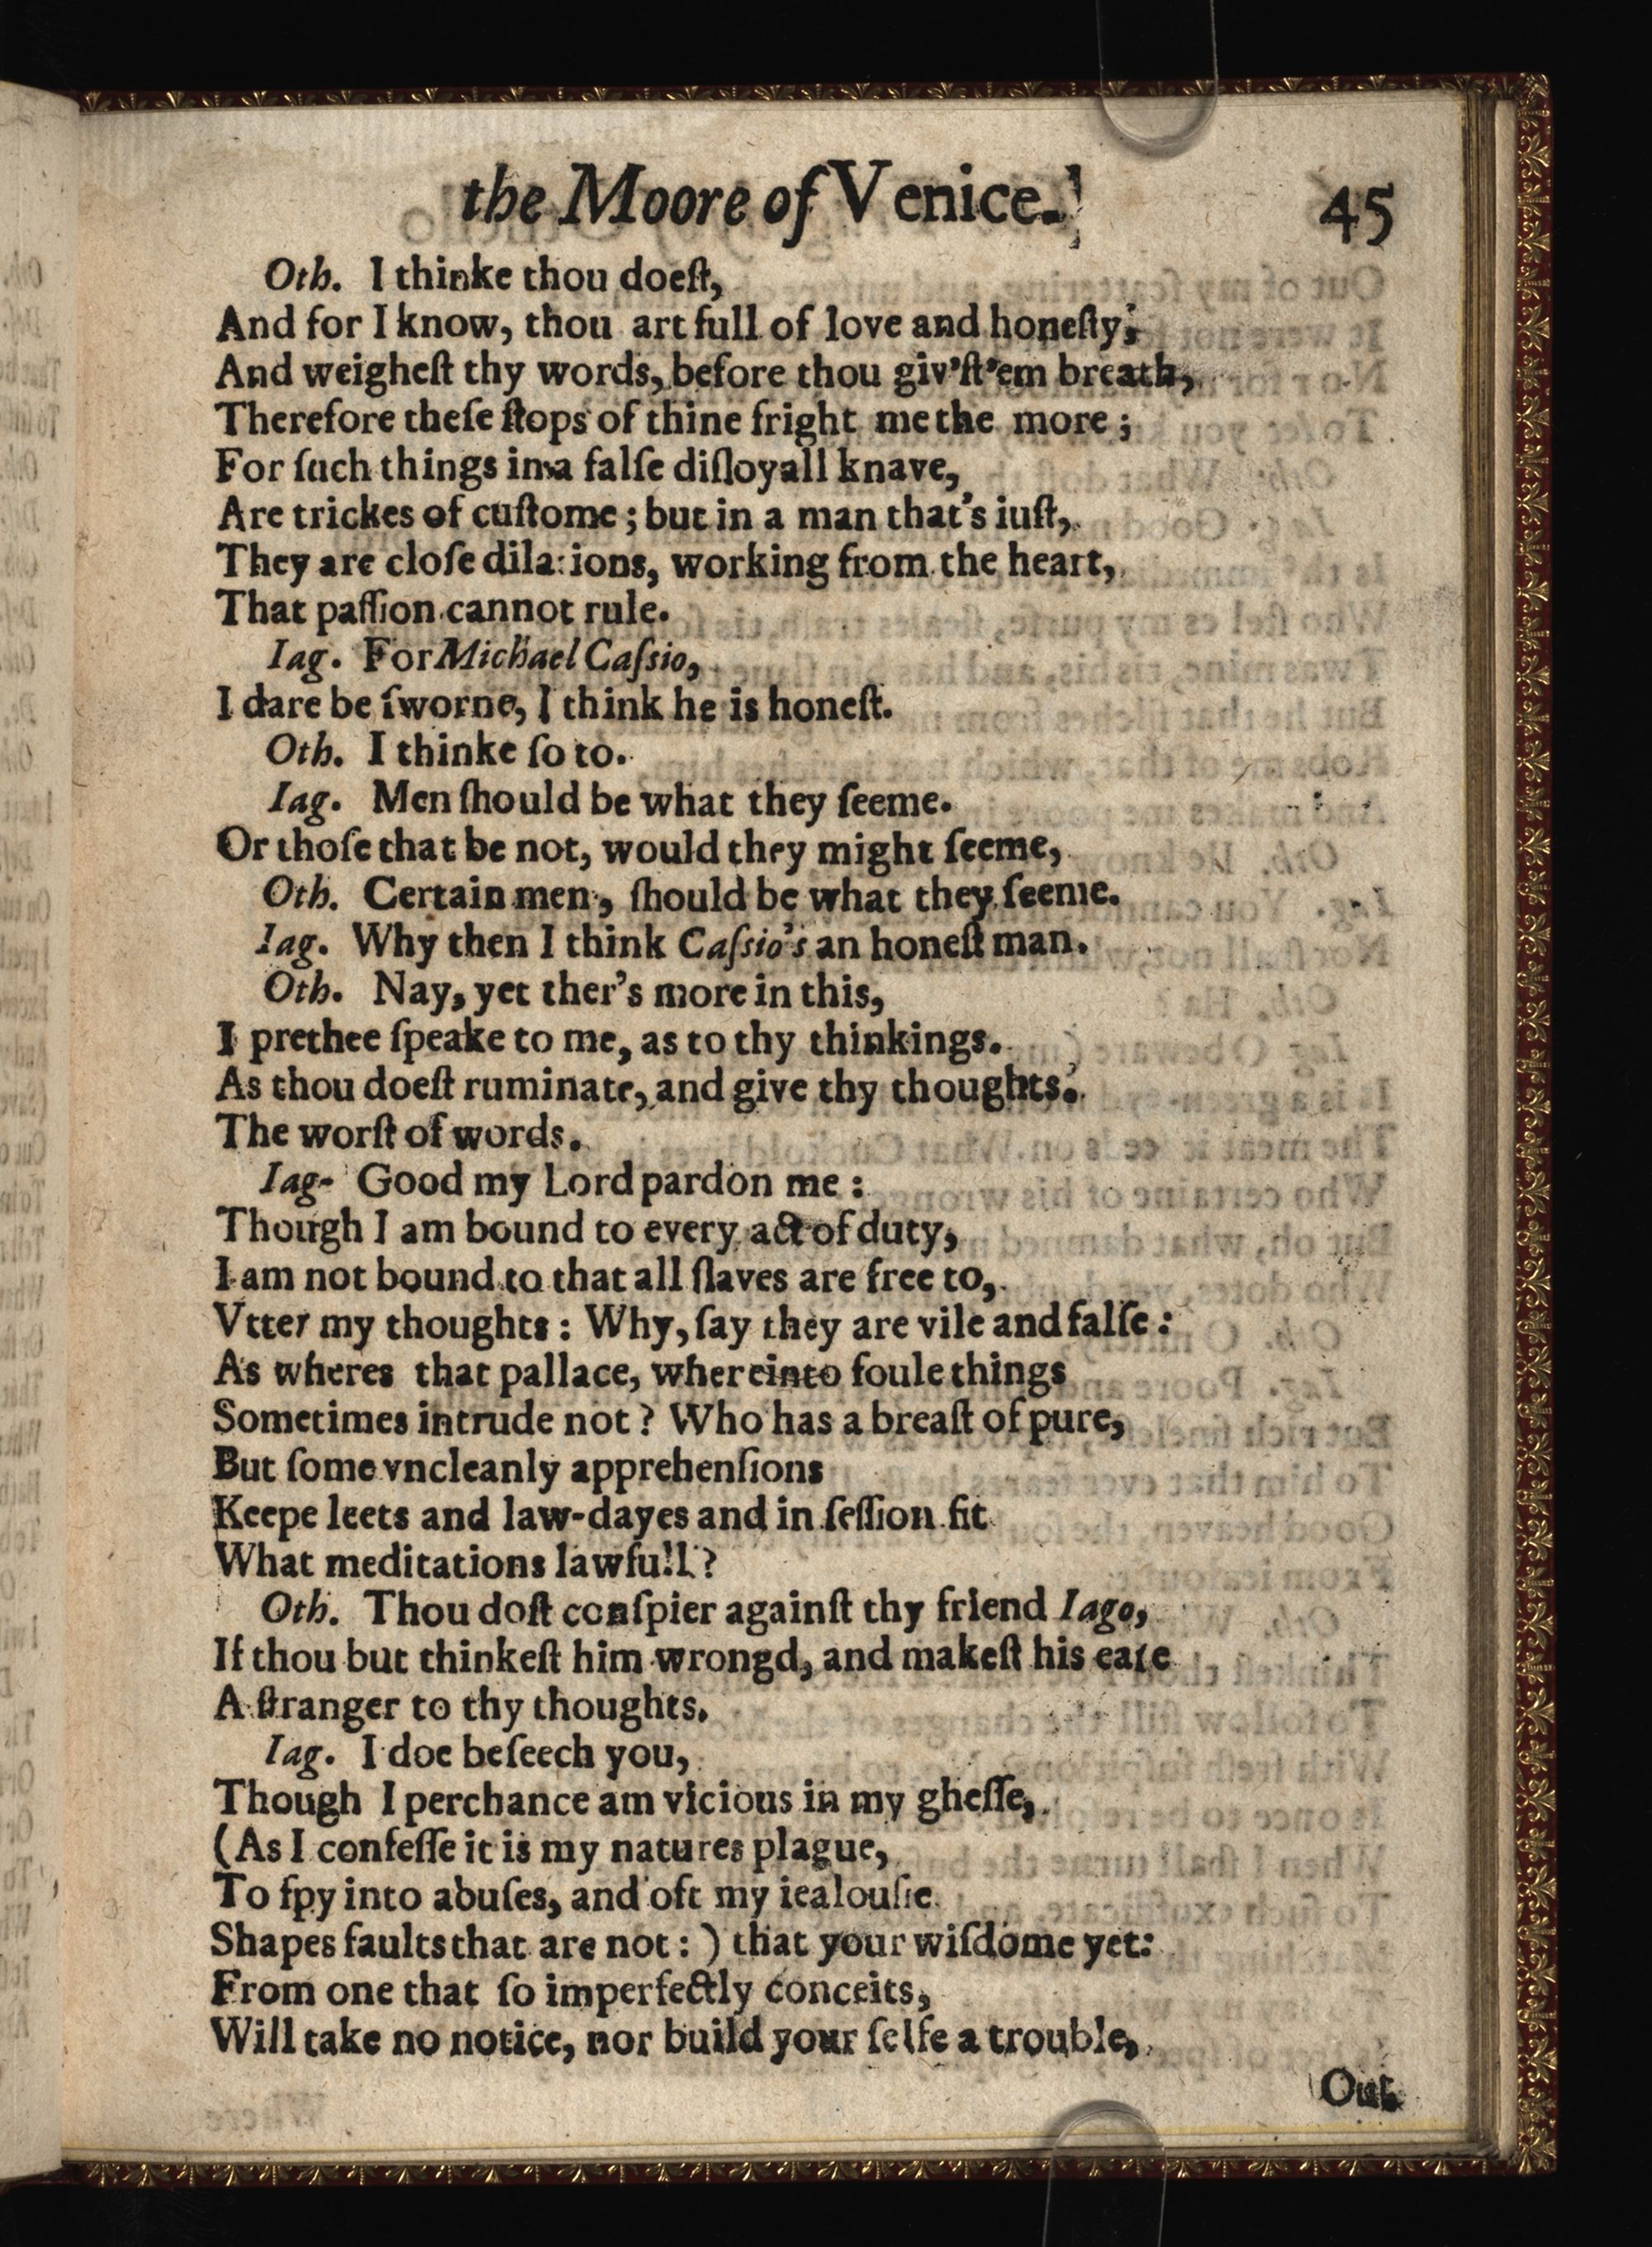 the Moore of Venice. 45
Oth. I thinke thou doeſt,
And for I know, thou art full of love and honeſty;
And weigheſt thy words, before thou giv'ſt'em breath,
Therefore theſe ſtops of thine fright me the more;
For ſuch things in a falſe diſloyall knave,
Are trickes of cuſtome; but in a man that's iuſt,
They are cloſe dilations, working from the heart,
That paſſion cannot rule.
Iag. For Michael Caſsio,
I dare be ſworne, I think he is honeſt.
Oth. I thinke ſo to.
Iag. Men ſhould be what they ſeeme.
Or thoſe that be not, would they might ſeeme,
Oth. Certain men, ſhould be what they ſeeme.
Iag. Why then I think Caſsio's an honeſt man.
Oth. Nay, yet ther's more in this,
I prethee ſpeake to me, as to thy thinkings.
As thou doeſt ruminate, and give thy thoughts.
The worſt of words.
Iag- Good my Lord pardon me:
Though I am bound to every act of duty,
I am not bound to that all ſlaves are free to,
Vtter my thoughts: Why, ſay they are vile and falſe:
As wheres that pallace, whereinto foule things
Sometimes intrude not? Who has a breaſt of pure,
But ſome vncleanly apprehenſions
Keepe leets and law-dayes and in ſeſſion ſit
What meditations lawfull?
Oth. Thou doſt conſpier againſt thy friend Iago,
If thou but thinkeſt him wrongd, and makeſt his eare
A ſtranger to thy thoughts.
Iag. I doe beſeech you,
Though I perchance am vicious in my gheſſe,
(As I confeſſe it is my natures plague,
To ſpy into abuſes, and oft my iealouſie
Shapes faults that are not:) that your wiſdome yet:
From one that ſo imperfectly conceits,
Will take no notice, nor build your ſelfe a trouble,
Out